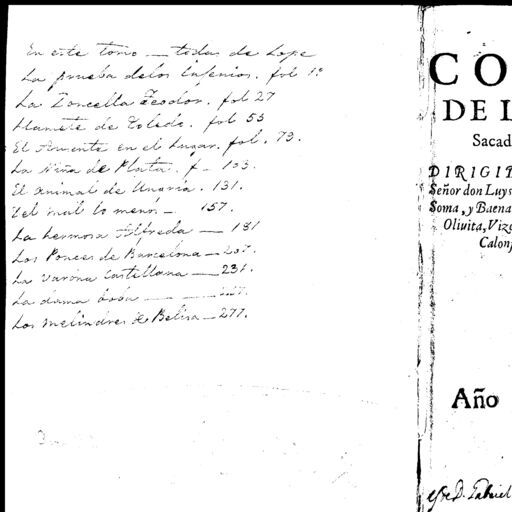 En este tomo — todas de Lope
La prueba de los ingenios. fol 1º
La Doncella Teodor. fol 27
Hamete de Toledo. fol 53
El Ausente en el Lugar. fol. 79.
La Niña de Plata. f - 103.
El Animal de Ungria. 131.
Del mal lo menos — 157.
La hermosa Alfreda — 181
Los Ponces de Barcelona — 207.
La Varona Castellana — 231.
La dama boba —
Los melindres de Belisa — 277.
CO
DE L
Sacad
DIRIGI
Señor don Luys
Soma, y Baena
Oliuita, Viz
Calon
Año
Gabriel